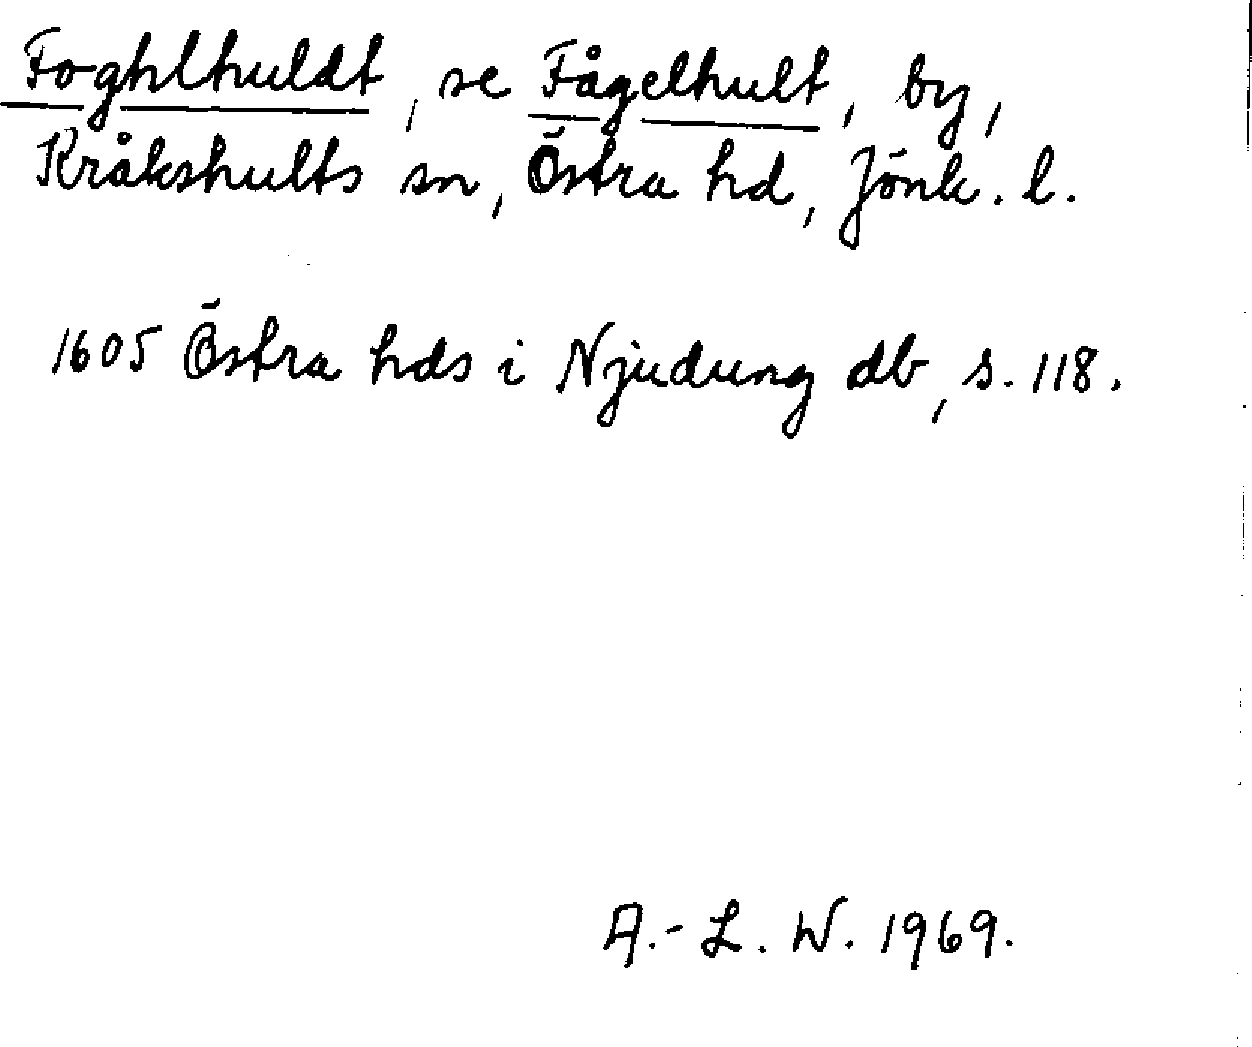 Foghlhuldt, se Fågelhult, by,
Kråkshults sn, Östra hd, Jönk. l.
1605 Östra hds i Njudung db, s. 118.
A.-L. W. 1969.